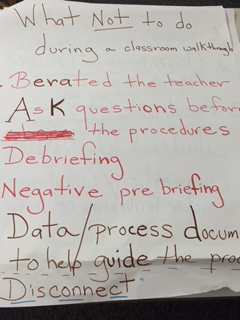 What Not to do
during a classroom walkthrough
- Berated the teacher
Ask questions befor
the procedures
Debriefing
Negative pre briefing
Data/process docum
to help guide the proc
Disconnect